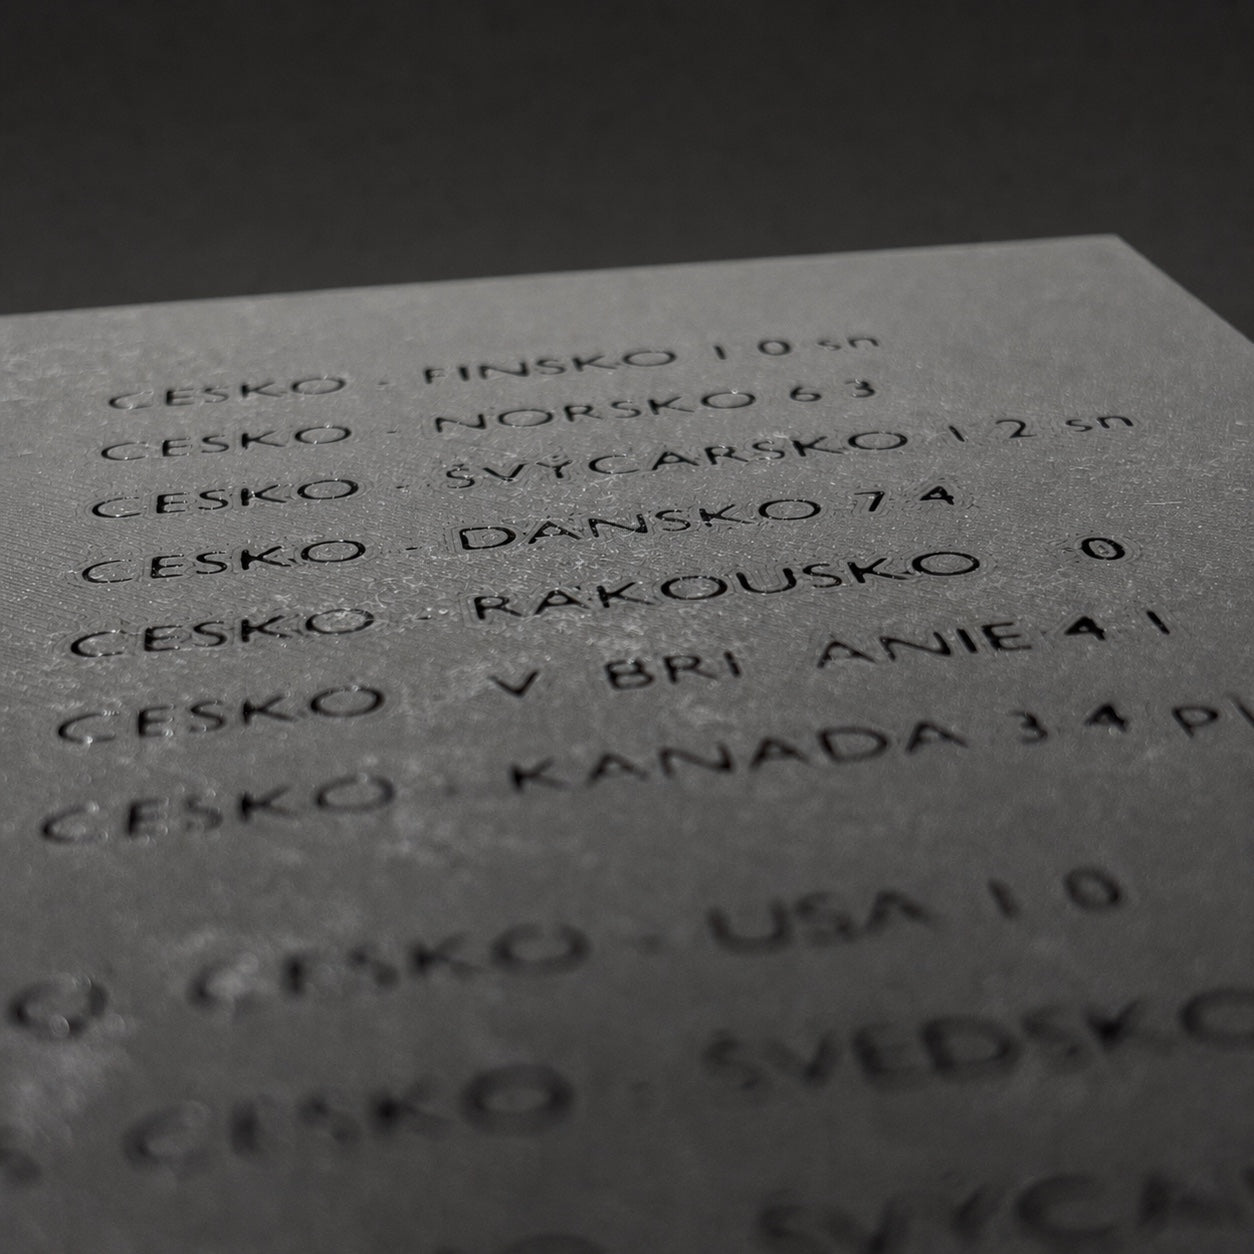 CESKO - FINSKO 1 0 sn
CESKO - NORSKO 6 3
CESKO - ŠVÝCARSKO 1 2 sn
CESKO - DANSKO 7 4
CESKO - RAKOUSKO 0
CESKO V BRI ANIE 4 1
CESKO - KANADA 3 4
CESKO - USA 1 0
CESKO - SVEDSKO